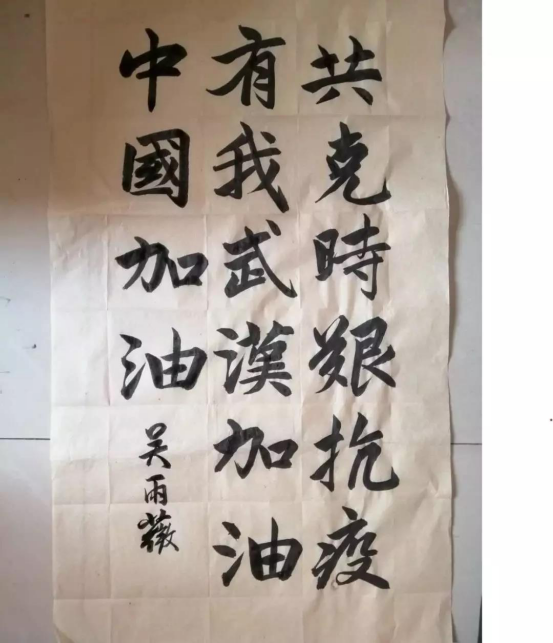 共克時艱抗疫
有我武漢加油
中國加油
吴雨薇